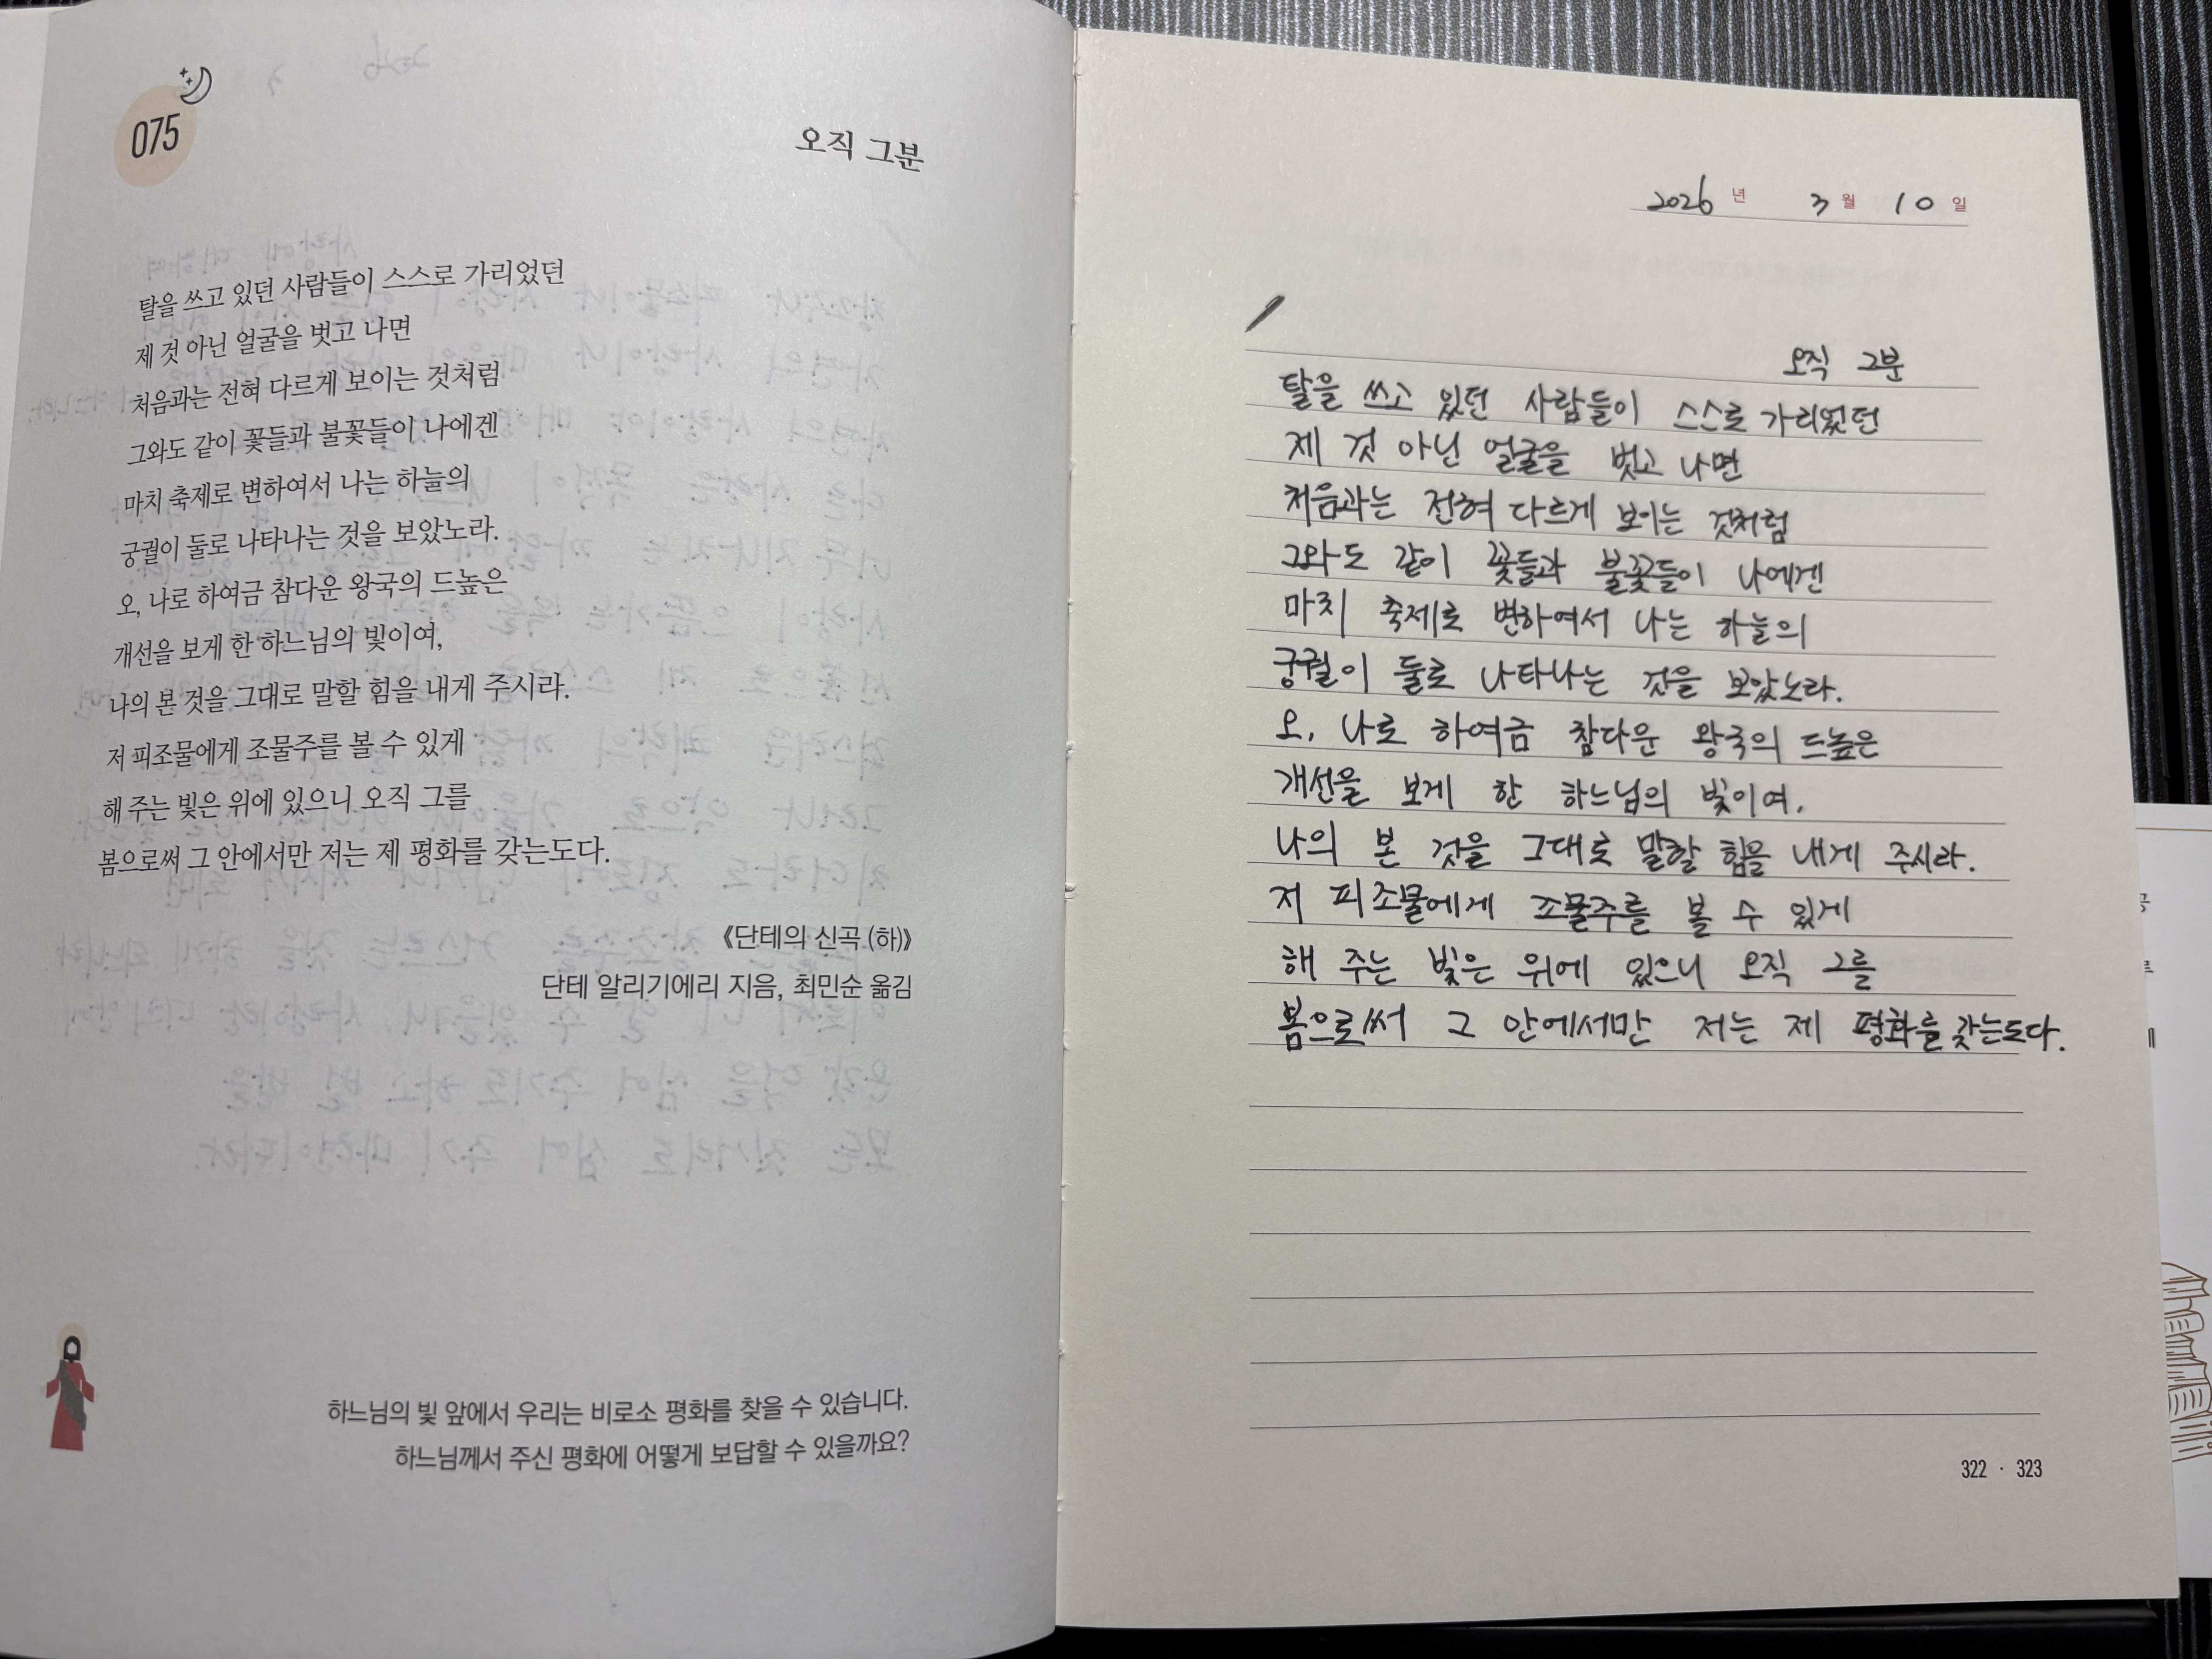 075
오직 그분
탈을 쓰고 있던 사람들이 스스로 가리었던
제 것 아닌 얼굴을 벗고 나면
처음과는 전혀 다르게 보이는 것처럼
그와도 같이 꽃들과 불꽃들이 나에겐
마치 축제로 변하여서 나는 하늘의
궁궐이 둘로 나타나는 것을 보았노라.
오, 나로 하여금 참다운 왕국의 드높은
개선을 보게 한 하느님의 빛이여,
나의 본 것을 그대로 말할 힘을 내게 주시라.
저 피조물에게 조물주를 볼 수 있게
해 주는 빛은 위에 있으니 오직 그를
봄으로써 그 안에서만 저는 제 평화를 갖는도다.
《단테의 신곡 (하)》
단테 알리기에리 지음, 최민순 옮김
하느님의 빛 앞에서 우리는 비로소 평화를 찾을 수 있습니다.
하느님께서 주신 평화에 어떻게 보답할 수 있을까요?
2026 년 3 월 10 일
오직 그분
탈을 쓰고 있던 사람들이 스스로 가리었던
제 것 아닌 얼굴을 벗고 나면
처음과는 전혀 다르게 보이는 것처럼
그와도 같이 꽃들과 불꽃들이 나에겐
마치 축제로 변하여서 나는 하늘의
궁궐이 둘로 나타나는 것을 보았노라.
오, 나로 하여금 참다운 왕국의 드높은
개선을 보게 한 하느님의 빛이여,
나의 본 것을 그대로 말할 힘을 내게 주시라.
저 피조물에게 조물주를 볼 수 있게
해 주는 빛은 위에 있으니 오직 그를
봄으로써 그 안에서만 저는 제 평화를 갖는도다.
322 · 323